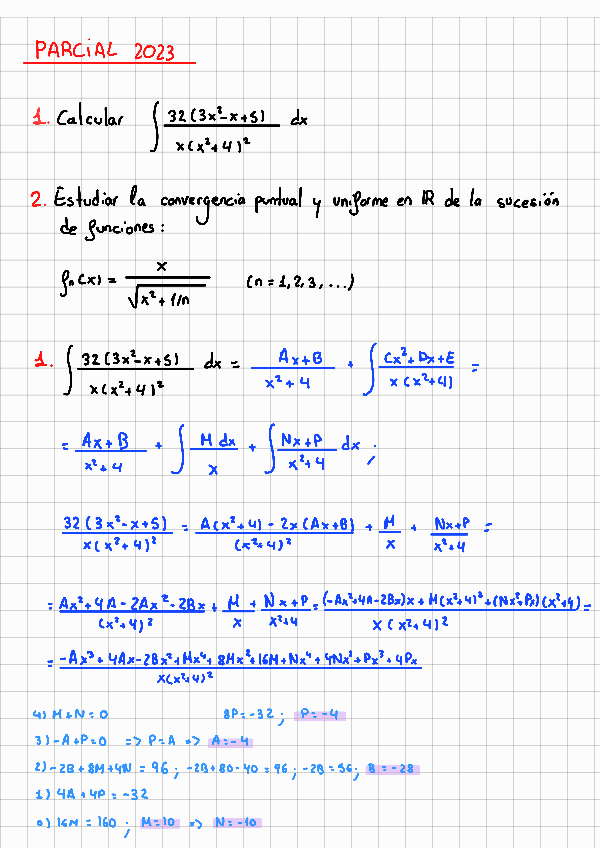 PARCIAL 2023
1. Calcular ∫ 32(3x²-x+5) / x(x²+4)² dx
2. Estudiar la convergencia puntual y uniforme en IR de la sucesión
de funciones:
fn(x) = x / √(x²+1/n) (n=1,2,3,...)
1. ∫ 32(3x²-x+5) / x(x²+4)² dx = Ax+B / x²+4 + ∫ Cx²+Dx+E / x(x²+4) =
= Ax+B / x²+4 + ∫ M dx / x + ∫ Nx+P / x²+4 dx ;
32(3x²-x+5) / x(x²+4)² = A(x²+4)-2x(Ax+B) / (x²+4)² + M / x + Nx+P / x²+4 =
= Ax²+4A-2Ax²-2Bx / (x²+4)² + M / x + Nx+P / x²+4 = (-Ax²+4A-2Bx)x+M(x²+4)²+(Nx²+Px)(x²+4) / x(x²+4)² =
= -Ax³+4Ax-2Bx²+Mx⁴+8Mx²+16M+Nx⁴+4Nx²+Px³+4Px / x(x²+4)²
4) M+N=0 8P=-32 ; P=-4
3) -A+P=0 => P=A => A=-4
2) -2B+8M+4N=96 ; -2B+80-40=96 ; -2B=56 ; B=-28
1) 4A+4P=-32
0) 16M=160 ; M=10 => N=-10